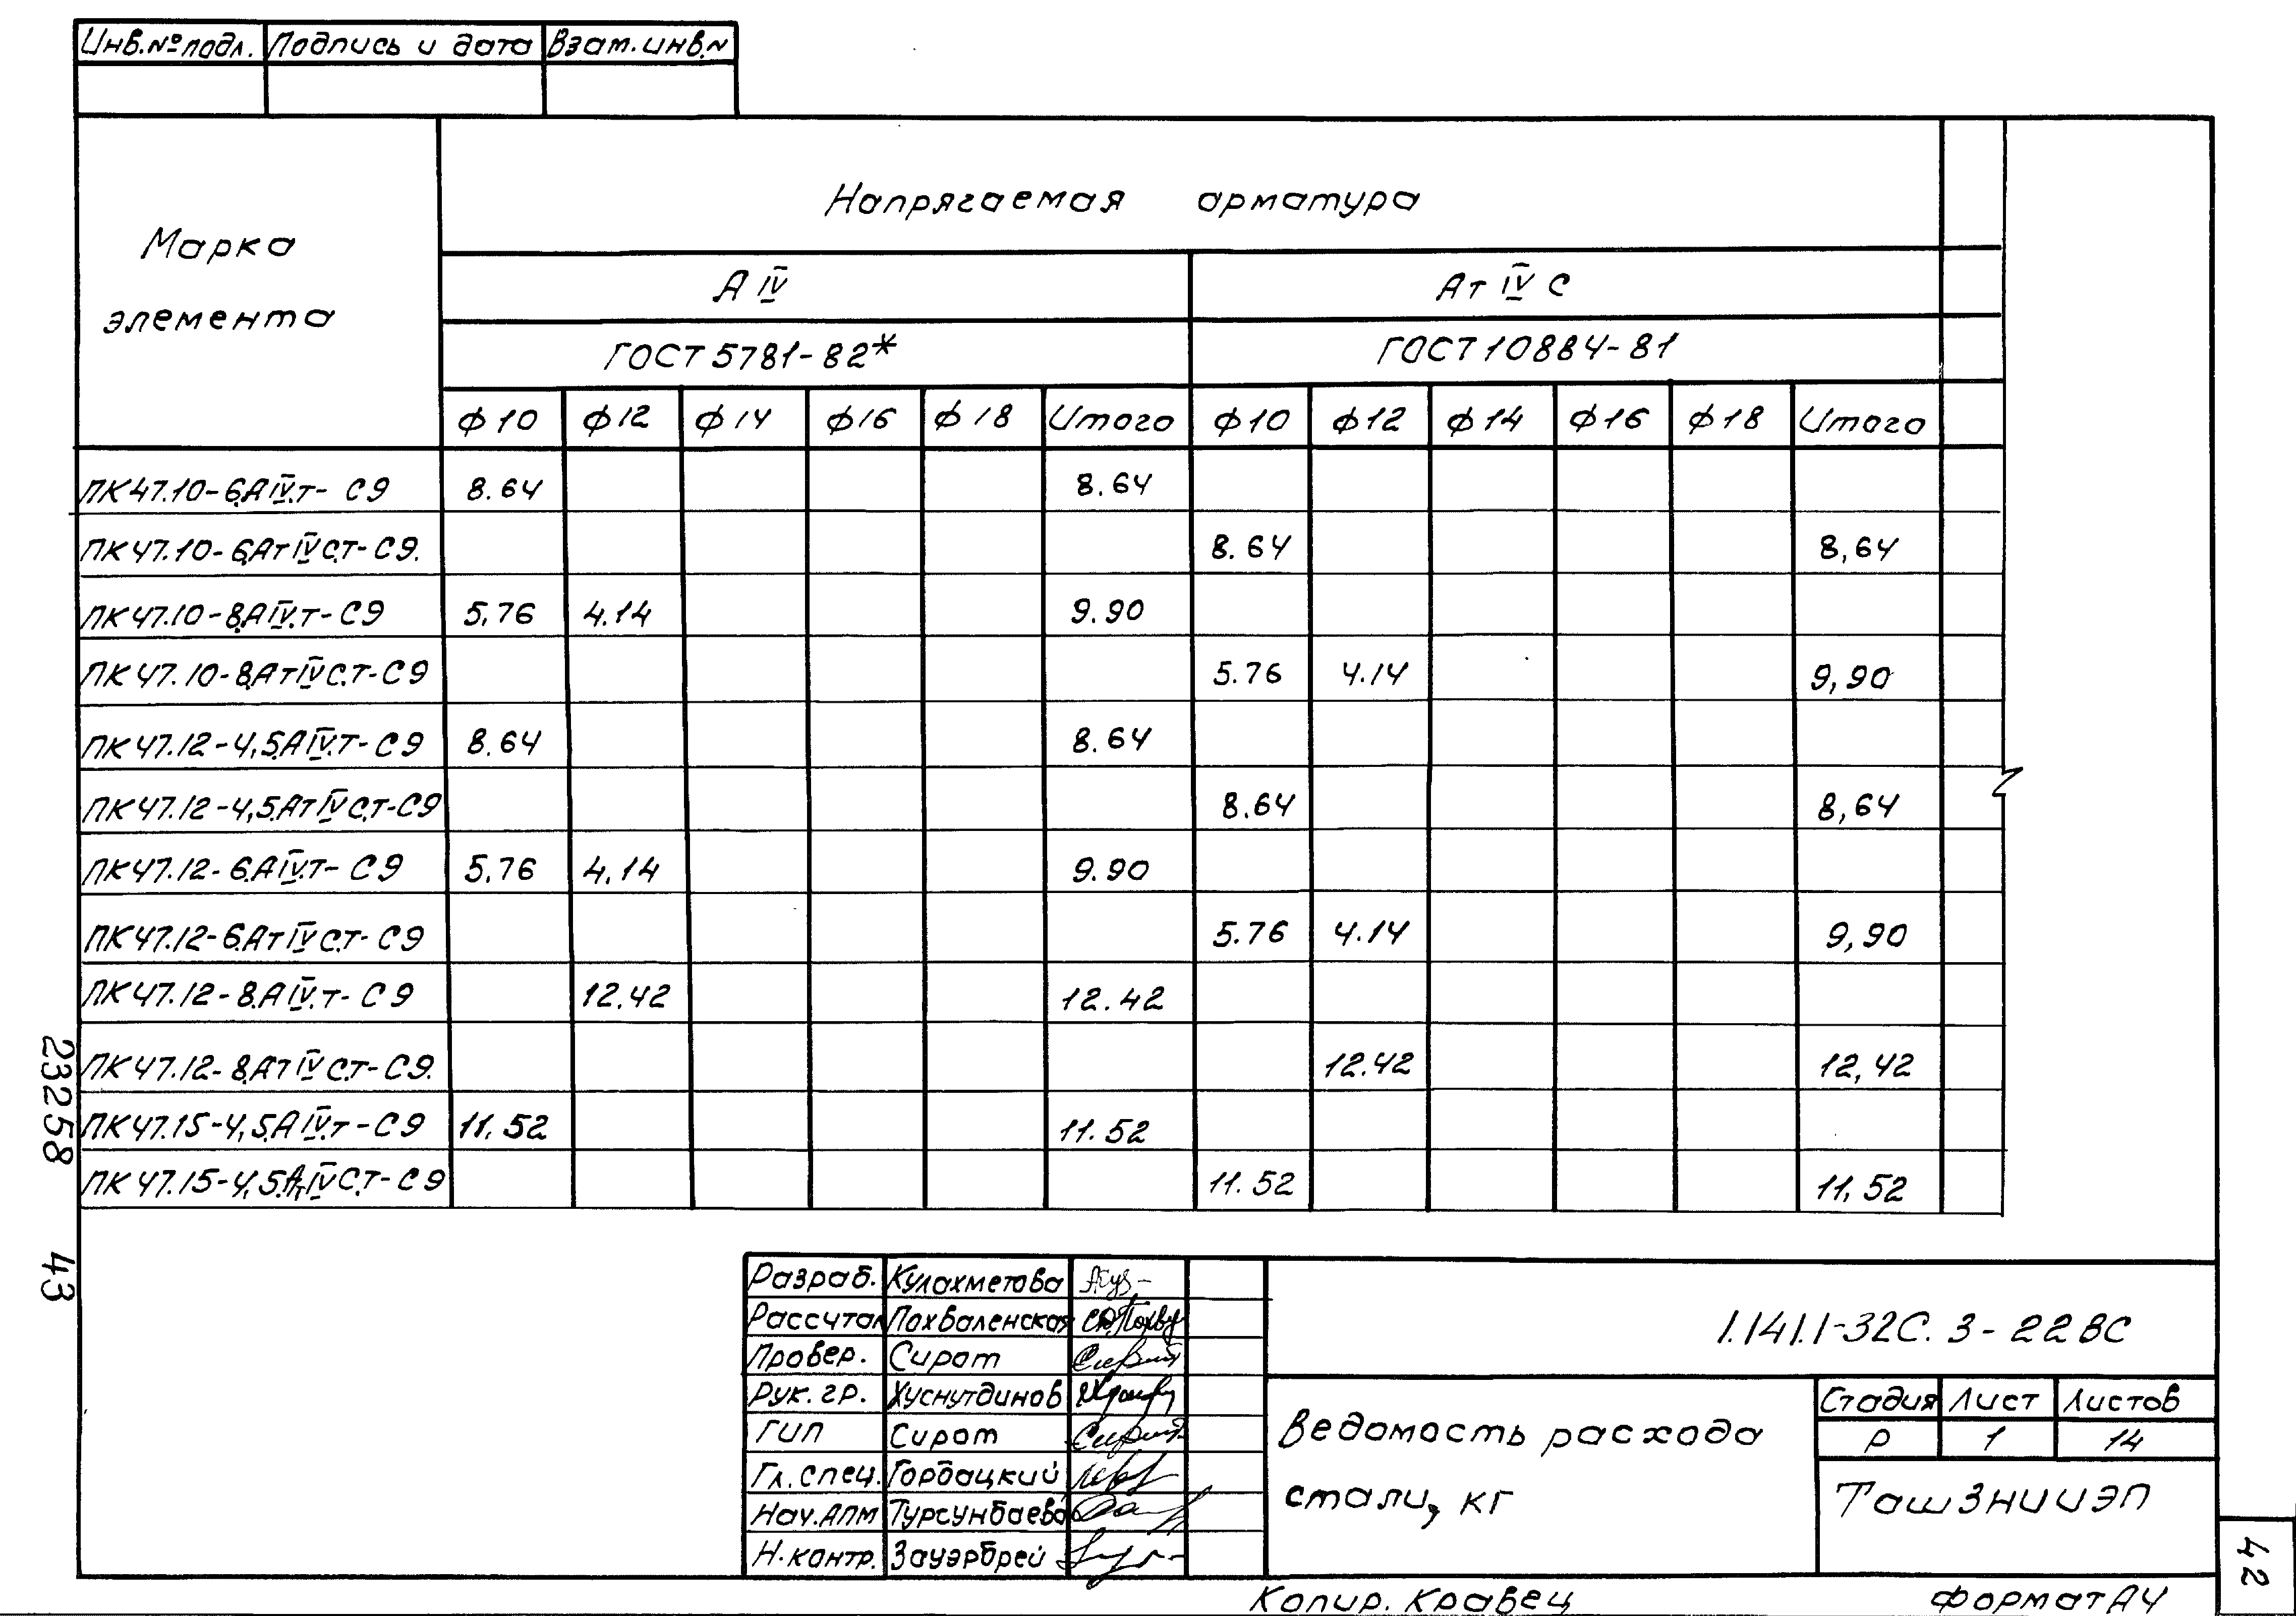 Инв.№ подл. Подпись и дата Взам.инв.N
Марка элемента
Напрягаемая арматура
А IV Ат IV С
ГОСТ 5781-82* ГОСТ 10884-81
ф10 ф12 ф14 ф16 ф18 Итого ф10 ф12 ф14 ф16 ф18 Итого
ПК47.10-6.АIV.т-С9 8.64 8.64
ПК47.10-6.АтIVС.т-С9. 8.64 8,64
ПК47.10-8.АIV.т-С9 5.76 4.14 9.90
ПК47.10-8.АтIVС.т-С9 5.76 4.14 9,90
ПК47.12-4,5.АIV.т-С9 8.64 8.64
ПК47.12-4,5.АтIVС.т-С9 8.64 8,64
ПК47.12-6.АIV.т-С9 5.76 4.14 9.90
ПК47.12-6.АтIVС.т-С9 5.76 4.14 9,90
ПК47.12-8.АIV.т-С9 12.42 12.42
ПК47.12-8.АтIVС.т-С9. 12.42 12,42
ПК47.15-4,5.АIV.т-С9 11.52 11.52
ПК47.15-4,5.АтIVС.т-С9 11.52 11,52
23258 43
Разраб. Кулахметова
Рассчитал Похваленская
Провер. Сирот
Рук. гр. Хуснутдинов
ГИП Сирот
Гл. спец. Горбацкий
Нач.АПМ Турсунбаева
Н.контр. Зауэрбрей
1.141.1-32С. 3-22ВС
Ведомость расхода
стали, кг
Стадия Лист Листов
Р 1 14
ТашЗНИИЭП
42
Копир. Кравец Формат А4